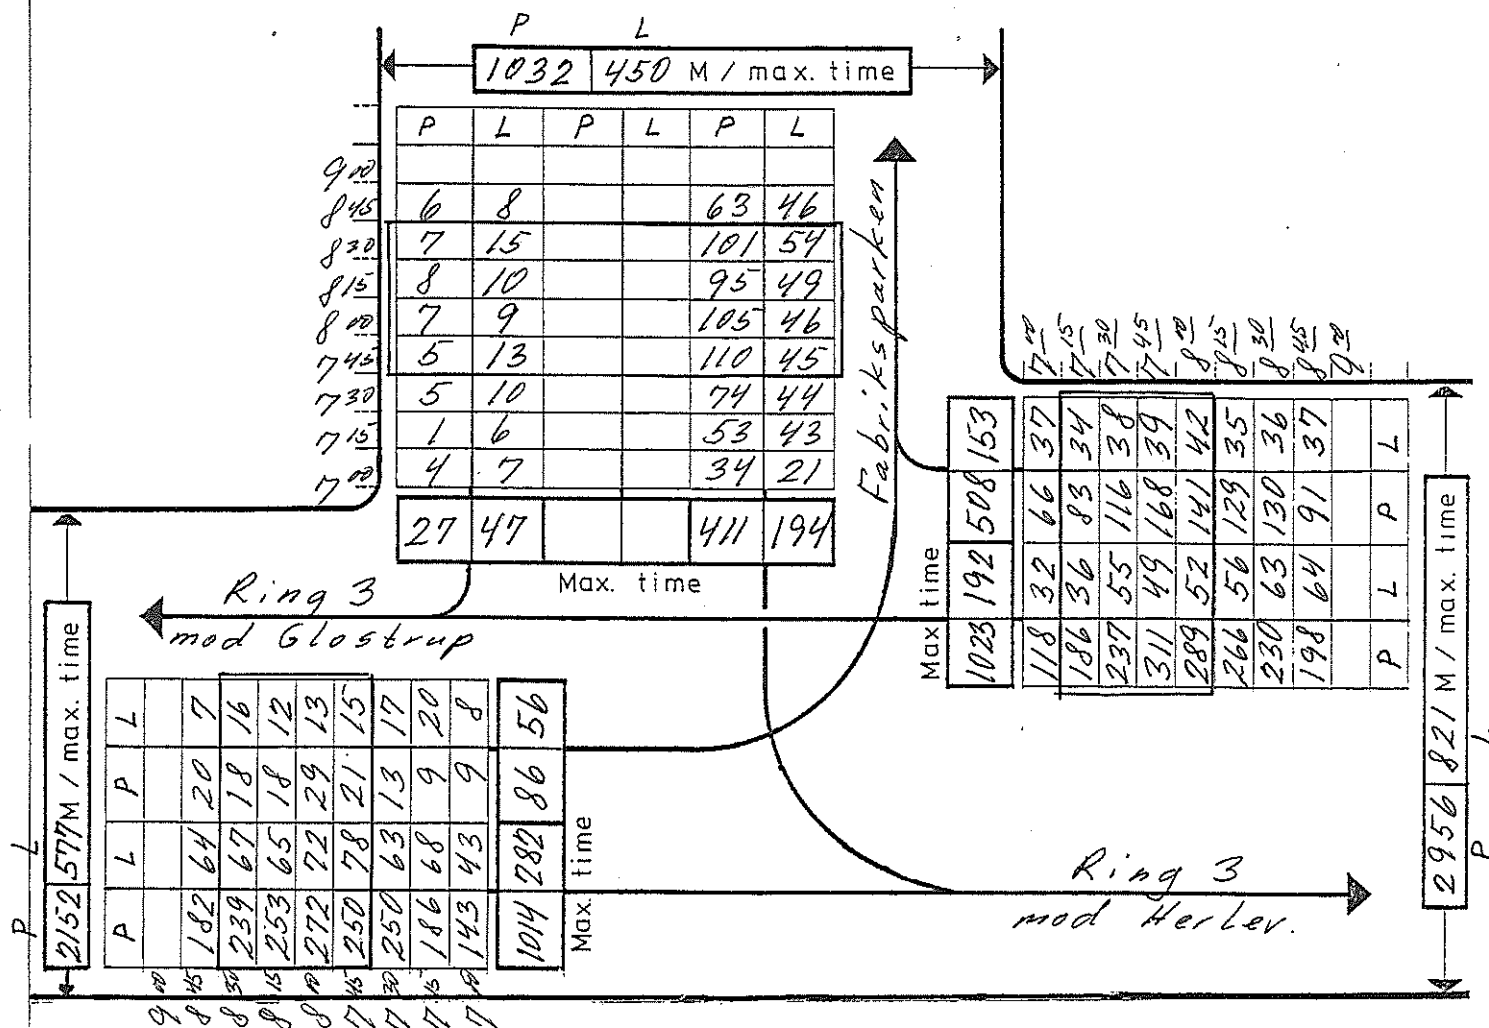 P L
1032 450 M / max. time
P L P L P L
9 00
8 45 6 8 63 46
8 30 7 15 101 54
8 15 8 10 95 49
8 00 7 9 105 46
7 45 5 13 110 45
7 30 5 10 74 44
7 15 1 6 53 43
7 00 4 7 34 21
27 47 411 194
Max. time
Fabriksparken
7 00 7 15 7 30 7 45 8 00 8 15 8 30 8 45 9 00
153 37 34 38 39 42 35 36 37 L
508 66 83 116 168 141 129 130 91 P
192 32 36 55 49 52 56 63 64 L
1023 118 186 237 311 289 266 230 198 P
Max time
2956 821 M / max. time
P L
Ring 3
mod Glostrup
P L
2152 577 M / max. time
L 7 16 12 13 15 17 20 8 56
P 20 18 18 29 21 13 9 9 86
L 64 67 65 72 78 63 68 43 282
P 182 239 253 272 250 250 186 143 1014
Max. time
9 00 8 45 8 30 8 15 8 00 7 45 7 30 7 15 7 00
Ring 3
mod Herlev.